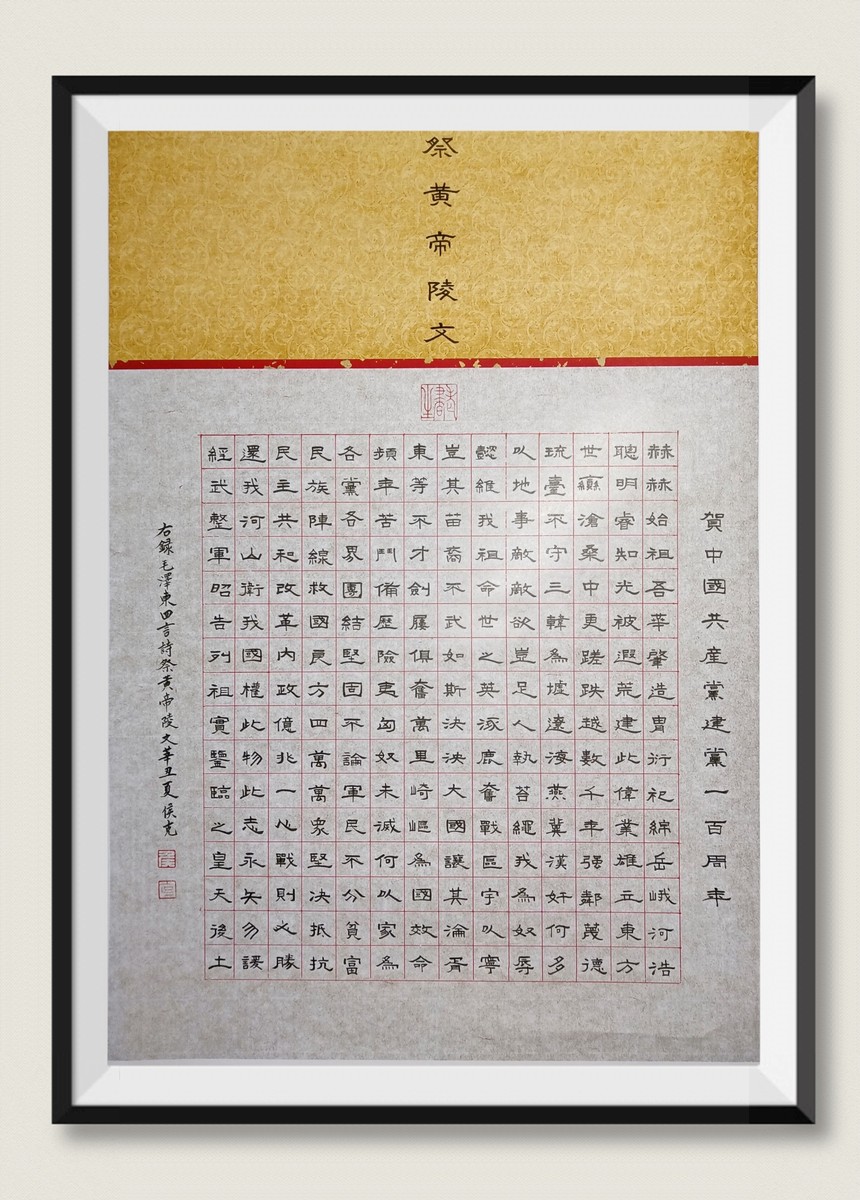 祭黃帝陵文
賀中國共産黨建黨一百周年
赫赫始祖吾華肇造胄衍祀綿岳峨河浩
聰明睿知光被遐荒建此偉業雄立東方
世變滄桑中更蹉跌越數千年强鄰蔑德
琉臺不守三韓為墟遼海燕冀漢奸何多
以地事敵敵欲豈足人執笞繩我為奴辱
懿維我祖命世之英涿鹿奮戰區宇以寧
豈其苗裔不武如斯決泱大國讓其淪胥
東等不才劍屨俱奮萬里崎嶇為國效命
頻年苦鬥備歷險夷匈奴未滅何以家為
各黨各界團結堅固不論軍民不分貧富
民族陣線救國良方四萬萬眾堅決抵抗
民主共和改革内政億兆一心戰則必勝
還我河山衛我國權此物此志永矢勿諼
經武整軍昭告列祖實鑒臨之皇天後土
右録毛澤東四言詩祭黃帝陵文辛丑夏侯克